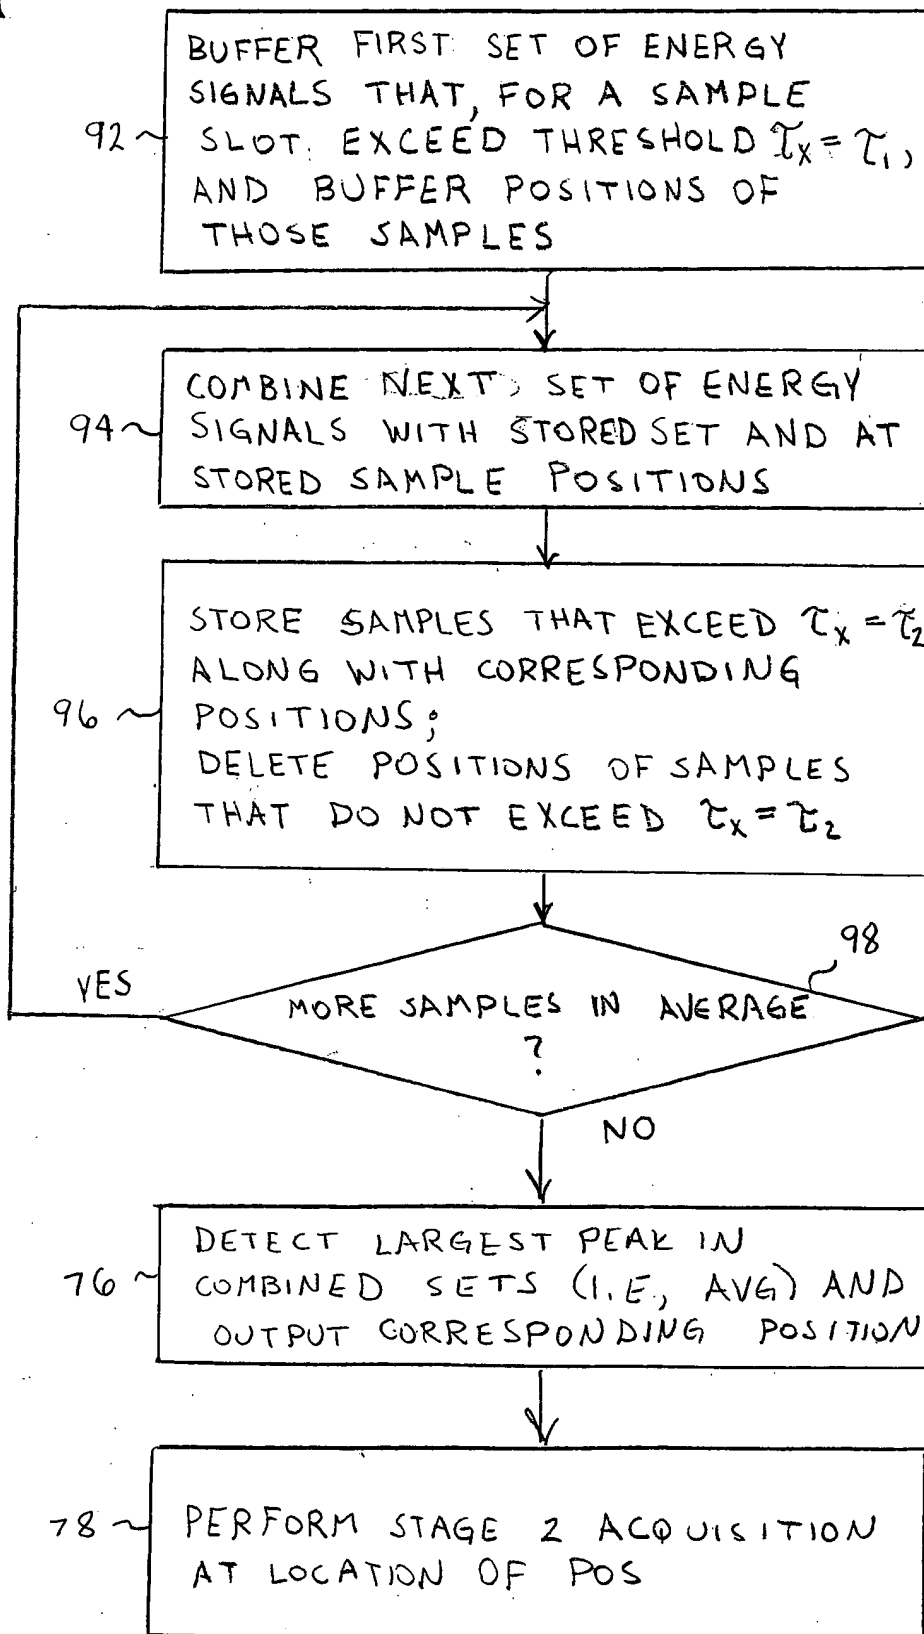 BUFFER FIRST SET OF ENERGY
SIGNALS THAT, FOR A SAMPLE
92 SLOT. EXCEED THRESHOLD τx = τ1,
AND BUFFER POSITIONS OF
THOSE SAMPLES
COMBINE NEXT, SET OF ENERGY
94 SIGNALS WITH STORED SET AND AT
STORED SAMPLE POSITIONS
STORE SAMPLES THAT EXCEED τx = τ2
ALONG WITH CORRESPONDING
96 POSITIONS;
DELETE POSITIONS OF SAMPLES
THAT DO NOT EXCEED τx = τ2
98
YES
MORE SAMPLES IN AVERAGE
?
NO
DETECT LARGEST PEAK IN
76 COMBINED SETS (I.E., AVG) AND
OUTPUT CORRESPONDING POSITION
78 PERFORM STAGE 2 ACQUISITION
AT LOCATION OF POS